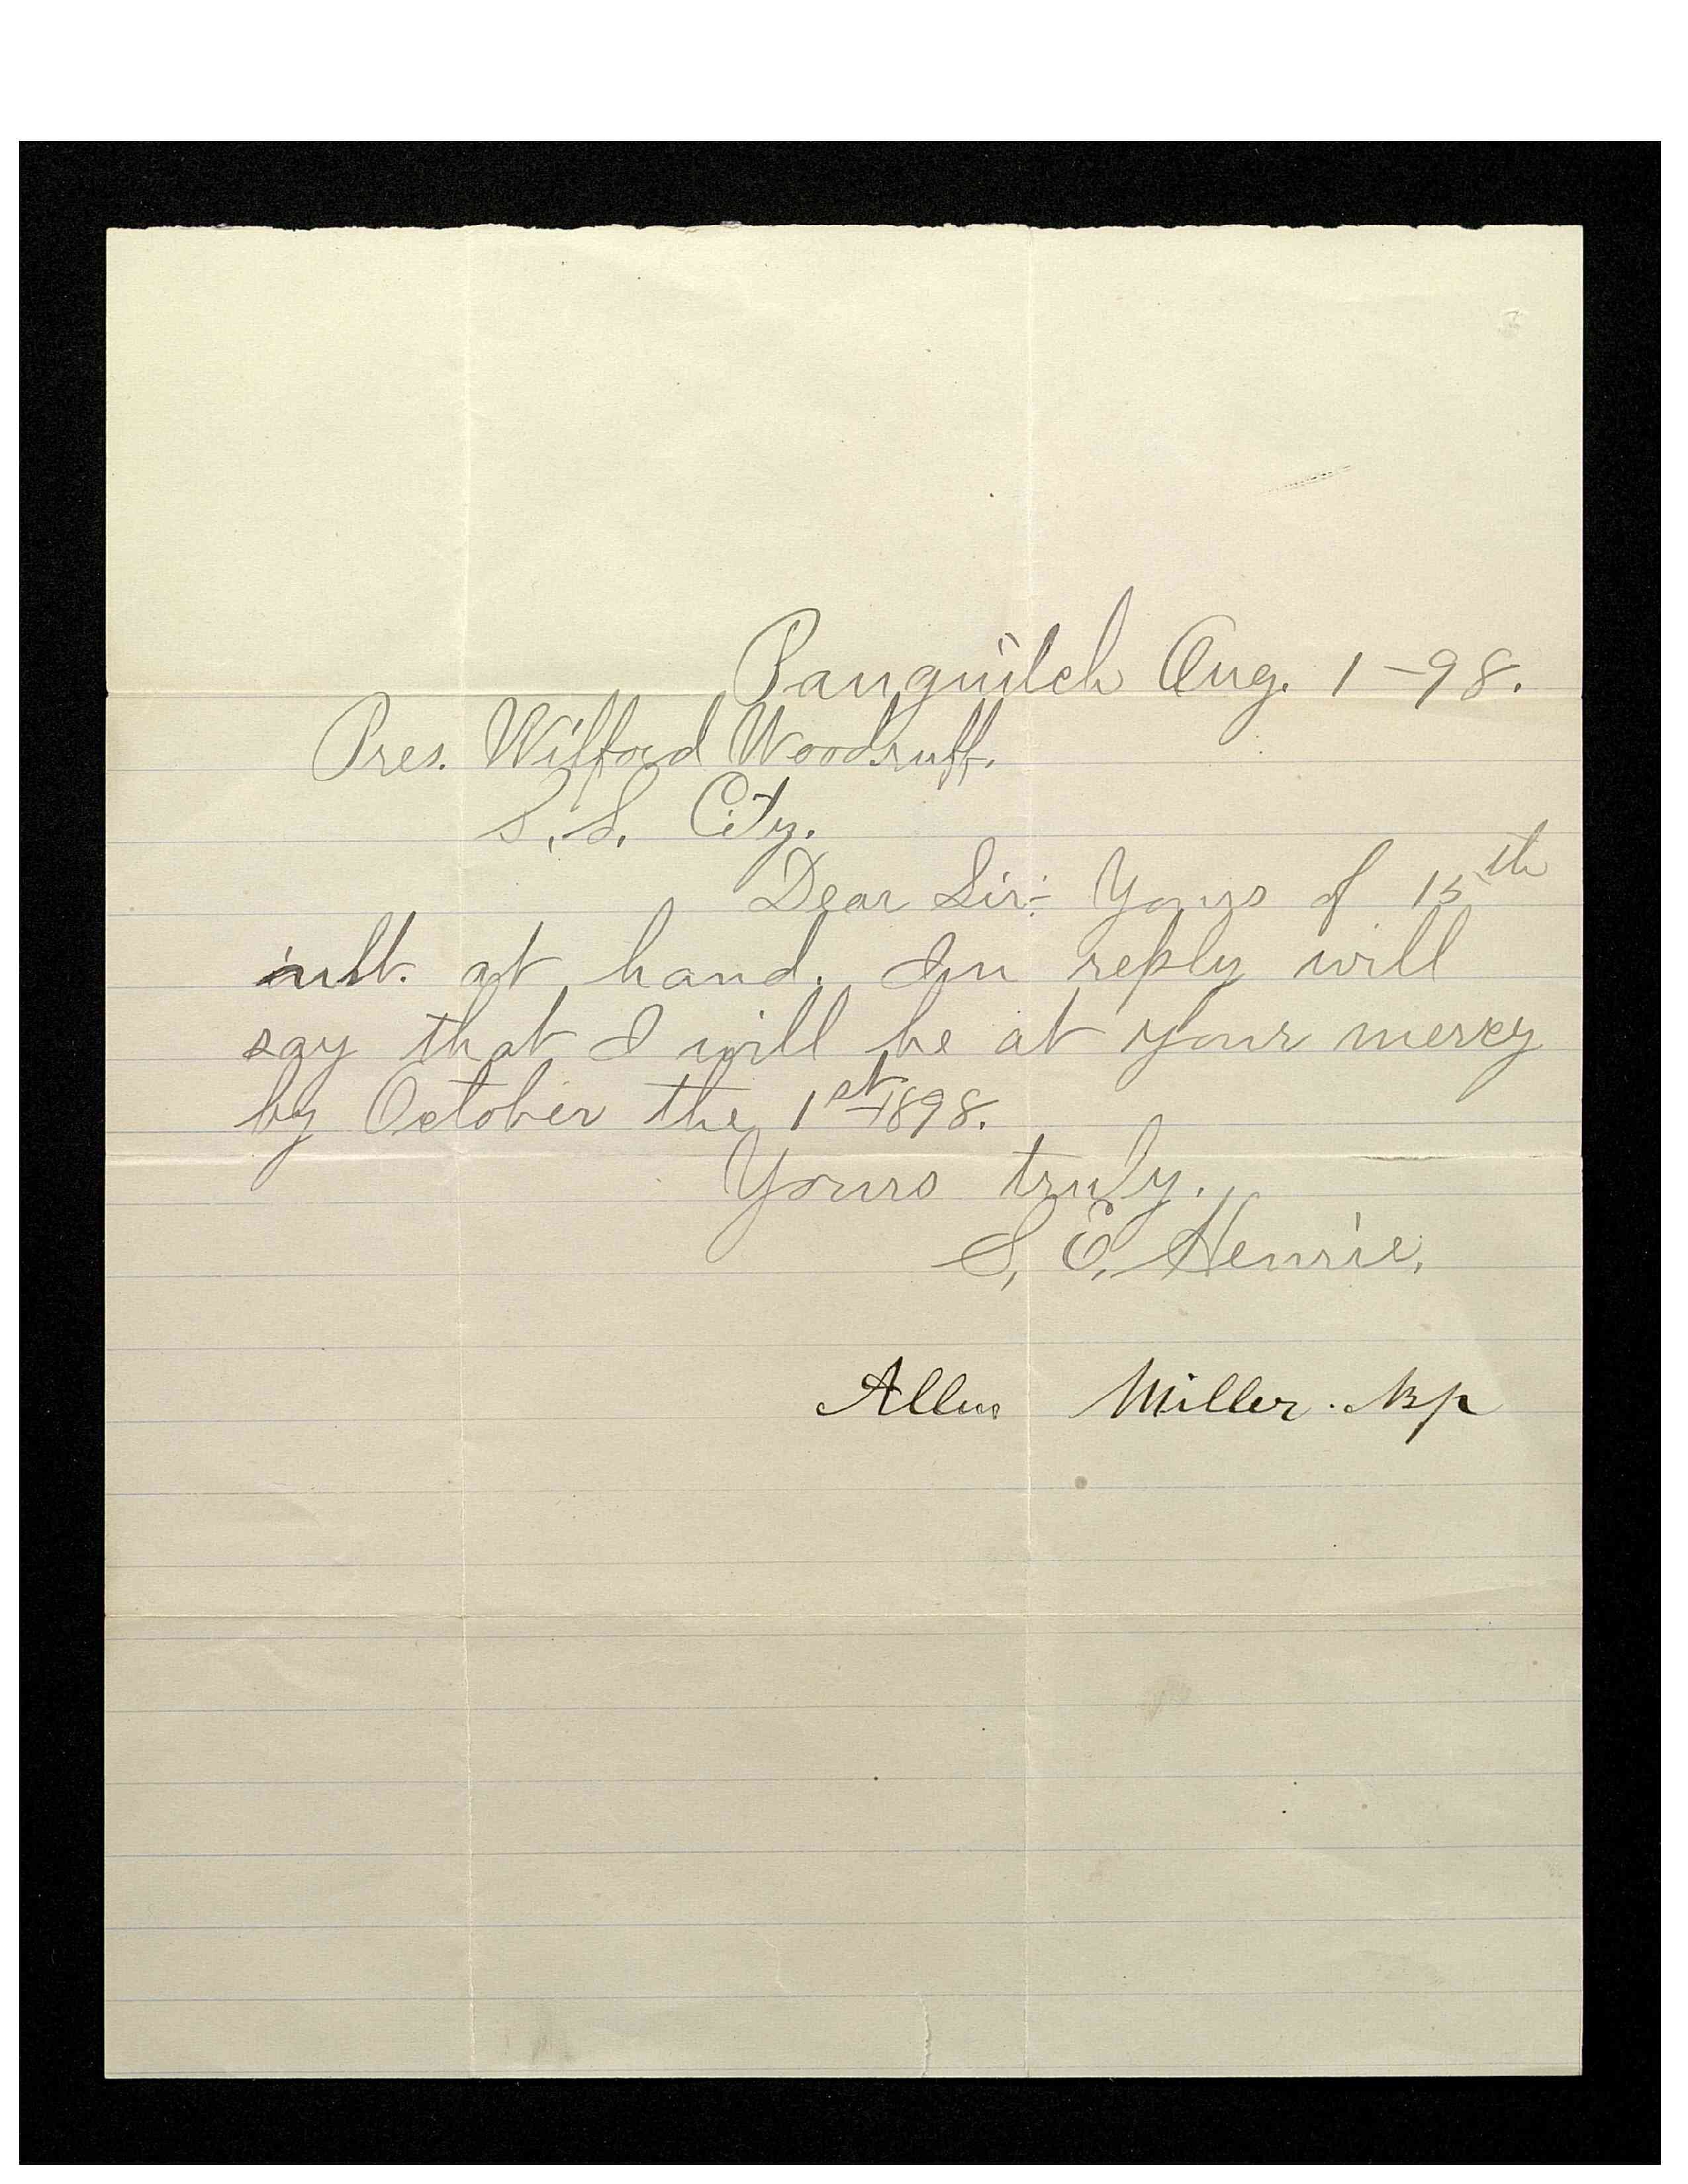 Panguitch Aug. 1-98.
Pres. Wilford Woodruff.
S. L. City.
Dear Sir:- Yours of 15th
ult. at hand. In reply will
say that I will be at your mercy
by October the 1st 1898.
Yours truly.
S. E. Henrie.
Allen Miller. Bp